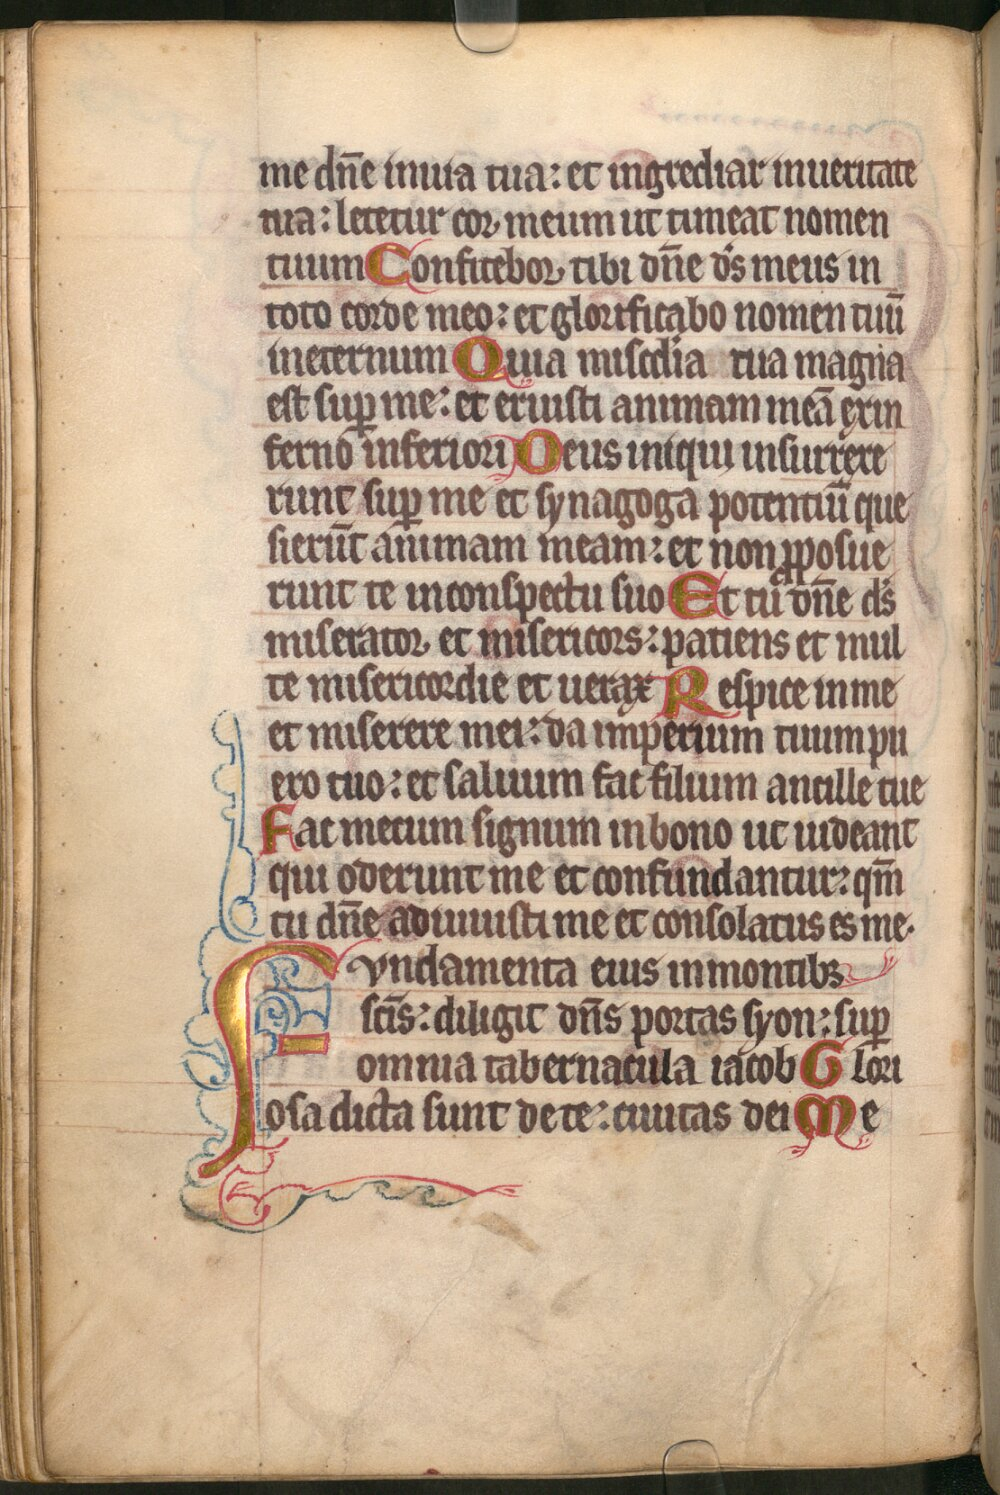 me dn̄e in uia tua: et ingrediar in ueritate
tua: letetur cor meum ut timeat nomen
tuum Confitebor tibi dn̄e ds̄ meus in
toto corde meo: et glorificabo nomen tuū
in eternum Quia miscd̄ia tua magna
est sup̱ me: et eriuisti animam meā ex in
ferno inferiori Deus iniqui insurrexe
runt sup̱ me et synagoga potentiū que
sierūt animam meam: et non ꝓposue
runt te in conspectu suo Et tu dn̄e ds̄
miserator et misericors: patiens et mul
te misericordie et uerax Respice in me
et miserere mei: da imperium tuum pu
ero tuo: et saluum fac filium ancille tue
Fac mecum signum in bono ut uideant
qui oderunt me et confundantur: qm̄
tu dn̄e adiuuisti me et consolatus es me.
Fvndamenta eius in montibꝫ
scīs: diligit dn̄s portas syon: sup̱
omnia tabernacula iacob Glori
osa dicta sunt de te: ciuitas dei Me